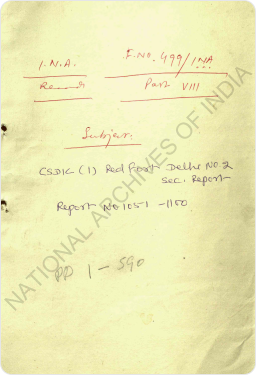 I.N.A. F. No. 499/INA
Records Part VIII
Subject:
CSDIC (I) Red Fort Delhi No. 2
Sec. Report
Report No 1051 - 1100
PP 1 - 590
NATIONAL ARCHIVES OF INDIA